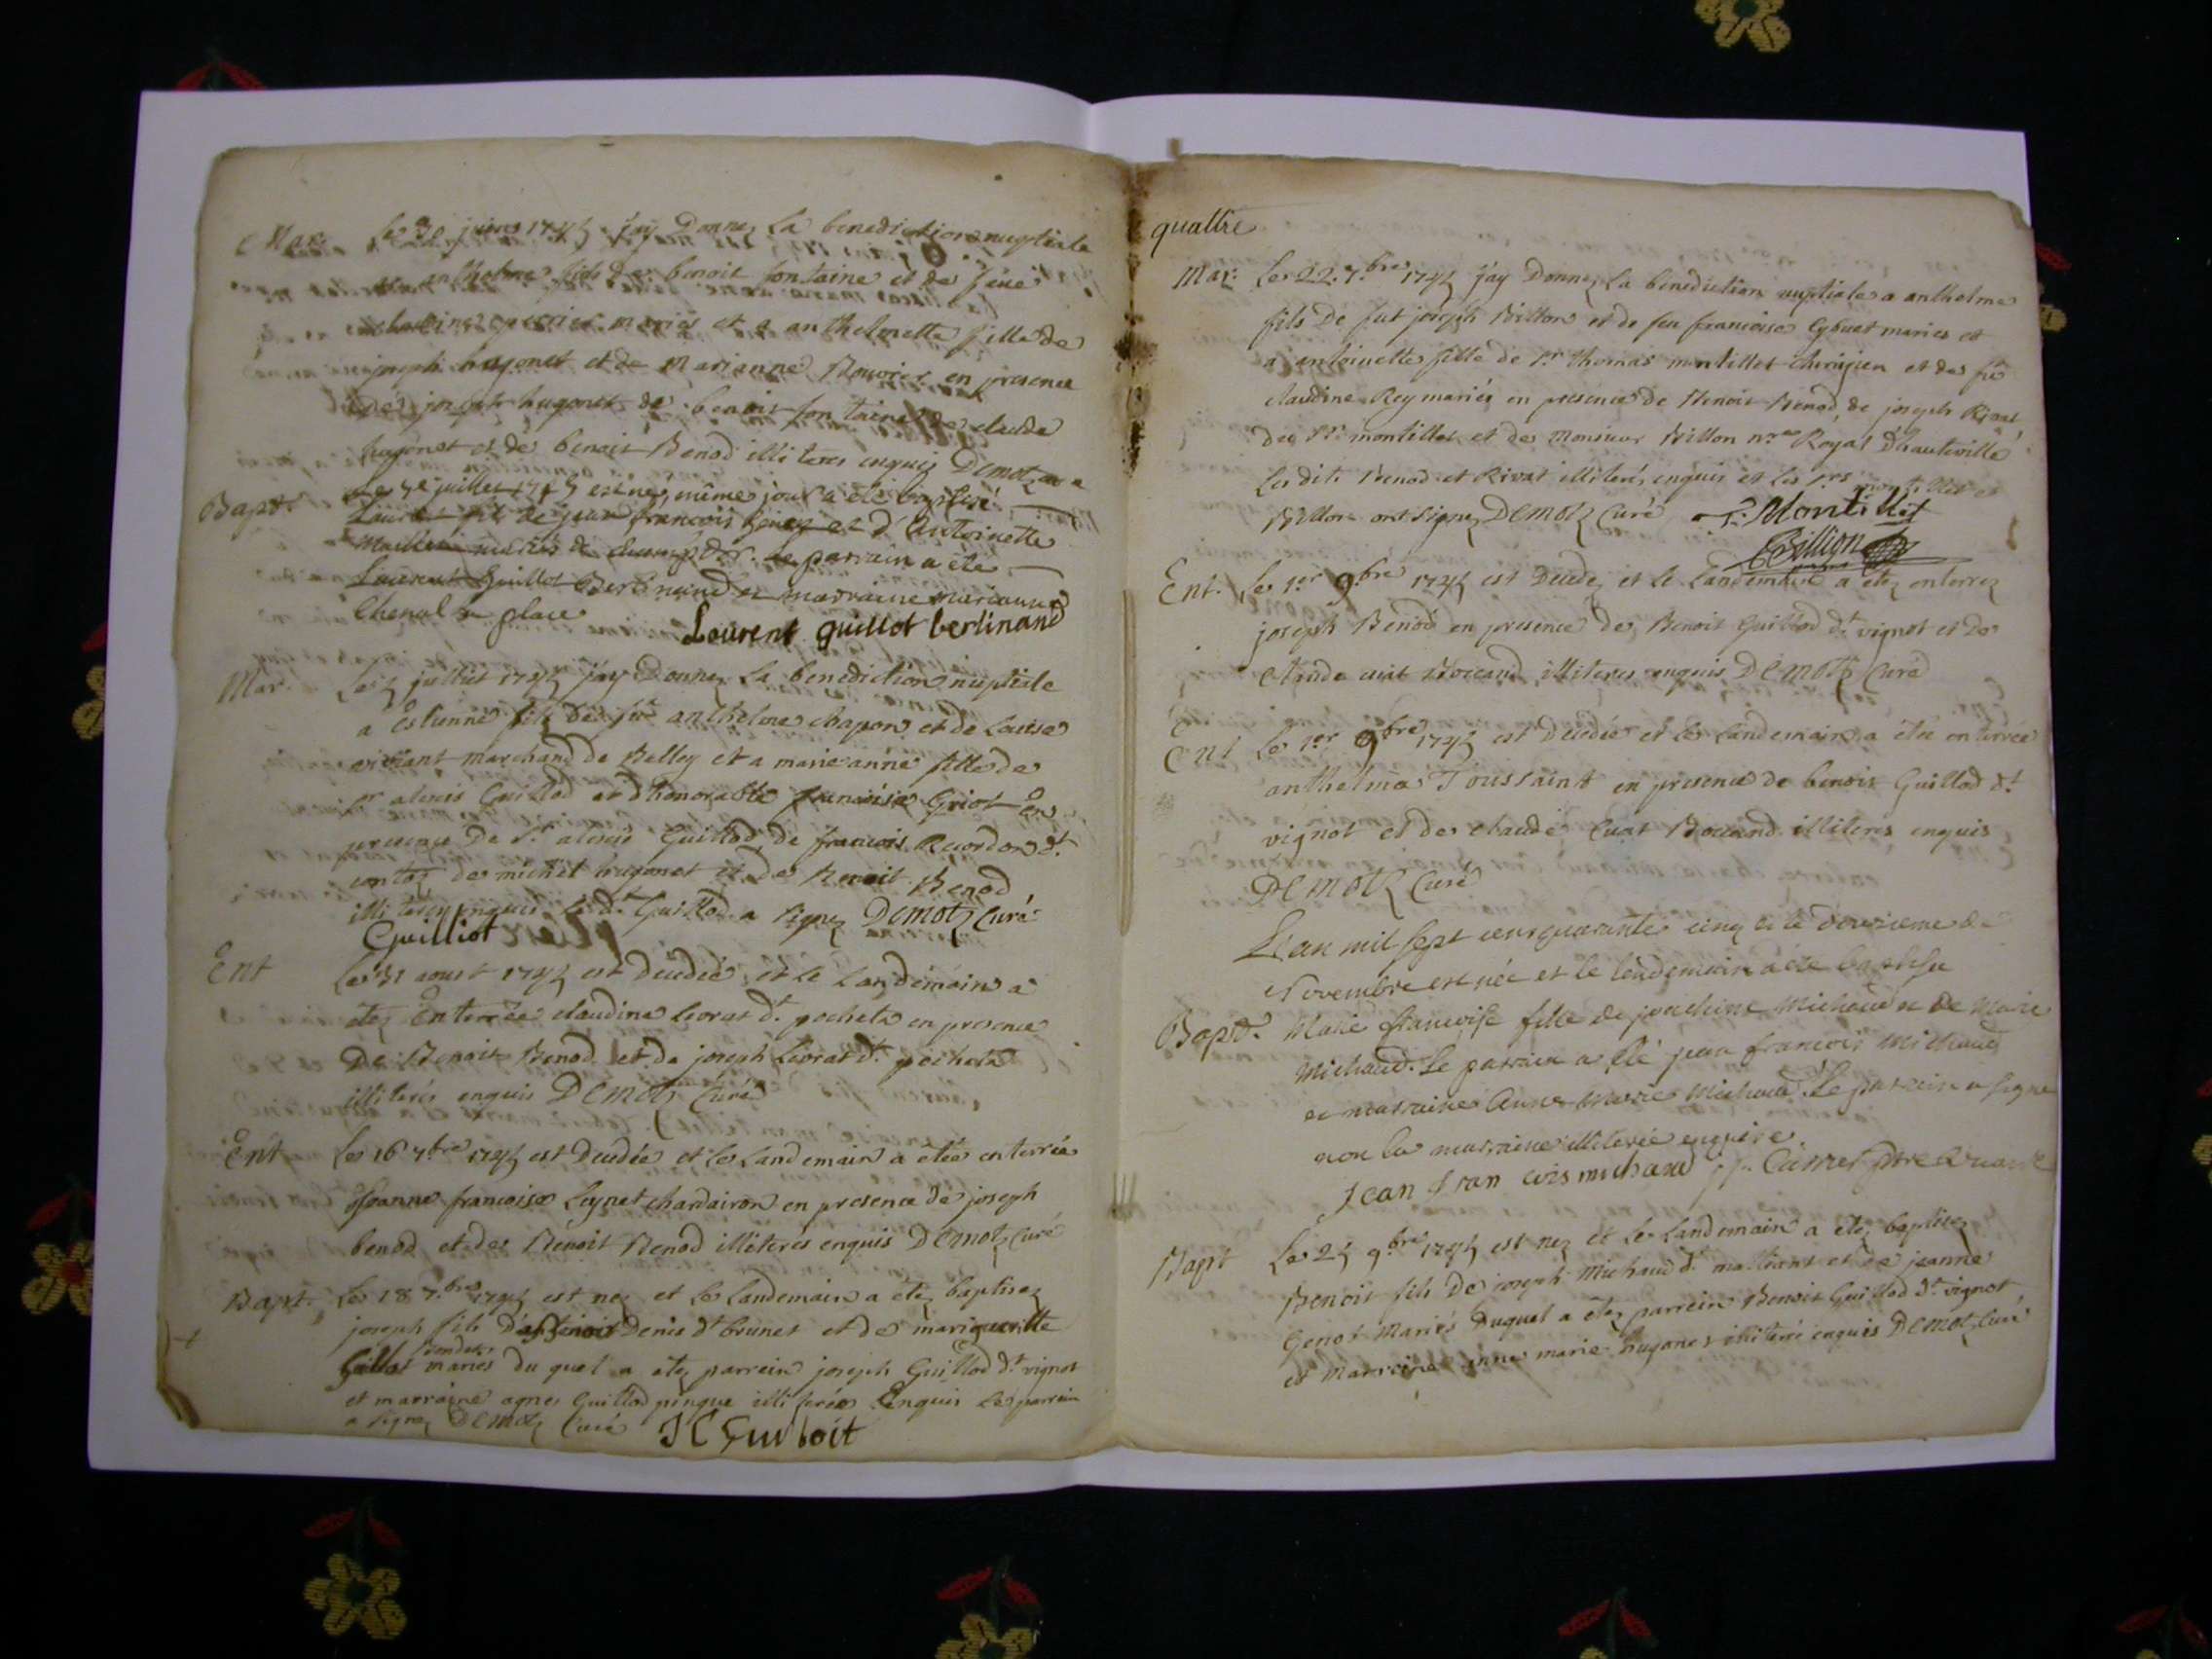 Mar. Le 30 juin 1745 j'ay Donnez La benediction nuptiale
a antholme fils de benoit fontaine et de feüe
claudine perrier mariés et a anthelmette fille de
joseph hugonet et de Marianne Bouvier en presence
de joseph hugonet de benoit fontaine de claude
hugonet et de benoit Benod illiteres enquis Demotz curé
Bapt. Le 5e juillet 1745 est né, même jour a été baptisé
Laurent fils de jean francois et d'Antoinette
mariés de le parrain a été
Laurent Guillot Berlinand et marraine marianne
Chenal
Laurent guillot berlinand
Mar. Le 5 julliet 1745 j'ay Donnez La benediction nuptiale
a Estienne fils des fût anthelme chapon et de Louise
vivant marchand de Belley et a marie anne fille de
sr alexis Guillod et d'honorable francoise Griot En
presence De Sr alexis Guillod, de francois Récordon dt
de michel hugonet et de Benoit Benod
illiteres enquis le dt Guillod a signez Demotz Curé
Guilliot
Ent Le 31 aoust 1745 est décédée et le Landemain a
étez Enterrée claudine Livrat dt pochet en presence
De Benoit Benod et de joseph Livrat dt pochet
illiterés enquis Demotz Curé
Ent Le 16 7bre 1745 est Decedée et le Landemain a etée enterrée
Jeanne francoise Leynet chardairon en presence de joseph
benod et de Benoit Benod illiteres enquis Demotz Curé
Bapt. Le 18 7bre 1745 est nez et le Landemain a etez baptisez
joseph fils Denis dt brunet et de
mariés du quel a étez parrein joseph Guillod dt vignot
et marraine agnes Guillod pingue illiterée Enquis le parrein
a signez Demotz Curé J C Guilloit
quattre
Mar: Le 22. 7.bre 1745 j'ay Donnez La benediction nuptiale a antholme
fils De fut joseph Billon et de feu francoise Cyvuet mariés et
a antoinette fille de sr thomas montillet chirujien et des fue
claudine Rey mariés en presence de Benoit Benod, de joseph Rivat,
des sr. montillet et de Monsieur Billon nre Royal d'hauteville
Les dits Benod et Rivat illiterés enquis et Les srs montillet et
Billon ont signez Demotz Curé T. Montillet
Billion
Ent. Le 1er 9bre 1745 est Decedez et le Landemain a étez enterrez
joseph Benod en presence de Benoit Guillod dt vignot et de
claude cuat Bocand illiteres enquis Demotz Curé
Ent Le 1er 9bre 1745 est Decedée et le Landemain a étée enterrée
anthelma Toussaint en presence de benoit Guillod dt
vignot et de claude Cuat Bocand illiterés enquis
Demotz Curé
L'an mil sept cens quarante cinq et le douzieme de
Novembre est née et le lendemain a été baptisée
Bapt. Marie francoise fille de joachim Michaud et de Marie
Michaud. Le parrain a été jean francois Michaud
et marraine Anne Marie Michaud. Le parrain a signé
non la marraine illiterée enquise.
Jean fran cois michaud Carrel ptre
Bapt Le 25 9.bre 1745 est nez et le Landemain a etez baptisez
Benoit fils De joseph Michaud dt et de jeanne
Genot Mariés Duquel a étez parrein Benoit Guillod dt vignot
et Marreine anne marie hugonet illiteré enquis Demotz Curé